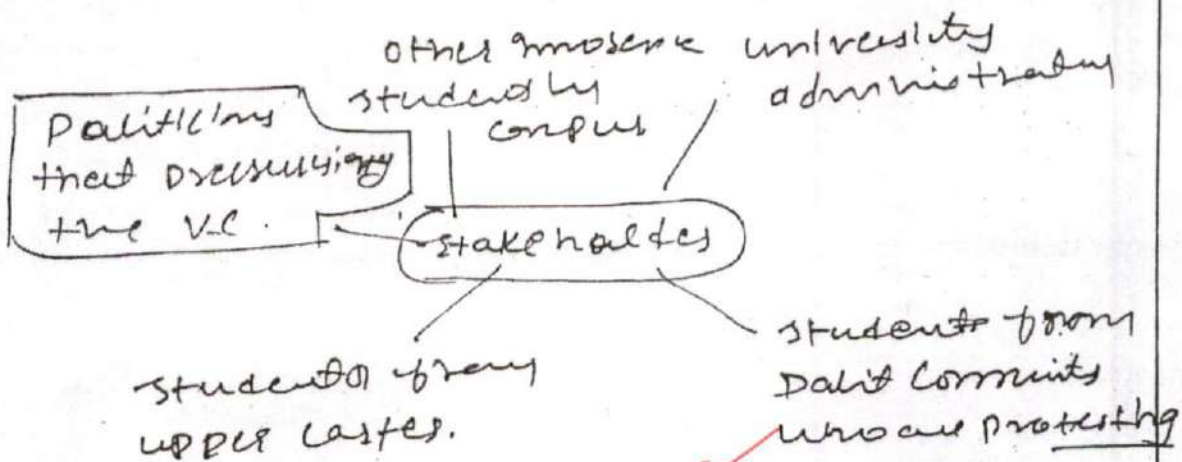 other innocent
students in
campus
university
administration
Politicians
that pressurising
the V.C.
stakeholders
students from
upper castes.
students from
Dalit Community
who are protesting